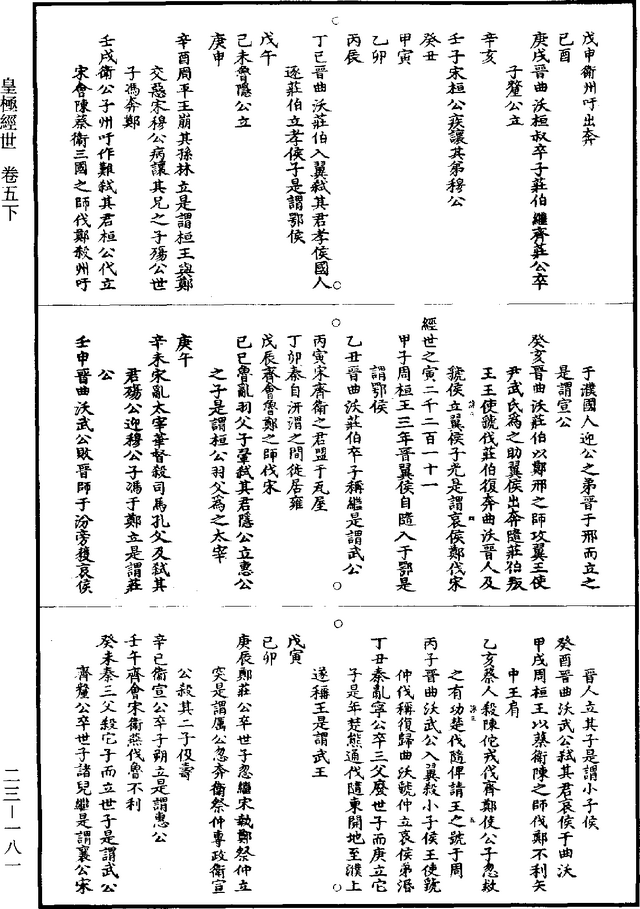 皇極經世　卷五下
戊申衛州吁出奔
己酉
庚戌晉曲沃桓叔卒子莊伯繼齊莊公卒
子釐公立
辛亥
壬子宋桓公疾讓其弟穆公
癸丑
甲寅
乙卯
丙辰
丁巳晉曲沃莊伯入翼弒其君孝侯國人
逐莊伯立孝侯子是謂鄂侯
戊午
己未魯隱公立
庚申
辛酉周平王崩其孫林立是謂桓王與鄭
交惡宋穆公病讓其兄之子殤公世
子馮奔鄭
壬戌衛公子州吁作難弒其君桓公代立
宋會陳蔡衛三國之師伐鄭殺州吁
于濮國人迎公之弟晉于邢而立之
是謂宣公
癸亥晉曲沃莊伯以鄭邢之師攻翼王使
尹武氏為之助翼侯出奔隨莊伯叛
王王使虢伐莊伯復奔曲沃晉人及
虢侯立翼侯子光是謂哀侯鄭伐宋
經世之寅二千二百一十一
甲子周桓王三年晉翼侯自隨入于鄂是
謂鄂侯
乙丑晉曲沃莊伯卒子稱繼是謂武公
丙寅宋齊衛之君盟于瓦屋
丁卯秦自汧渭之間徙居雍
戊辰齊會魯鄭之師伐宋
己巳魯亂羽父子翬弒其君隱公立惠公
之子是謂桓公羽父為之太宰
庚午
辛未宋亂太宰華督殺司馬孔父及弒其
君殤公迎穆公子馮于鄭立是謂莊
公
壬申晉曲沃武公敗晉師于汾旁獲哀侯
晉人立其子是謂小子侯
癸酉晉曲沃武公弒其君哀侯于曲沃
甲戌周桓王以蔡衛陳之師伐鄭不利矢
中王肩
乙亥蔡人殺陳佗戎伐齊鄭使公子忽救
之有功楚伐隨俾請王之號于周
丙子晉曲沃武公入翼殺小子侯王使虢
仲伐稱復歸曲沃虢仲立哀侯弟湣
丁丑秦亂寧公卒三父廢世子而庚立它
子是年楚熊通伐隨東開地至濮上
遂稱王是謂武王
戊寅
己卯
庚辰鄭莊公卒世子忽繼宋執鄭祭仲立
突是謂厲公忽奔衛祭仲專政衛宣
公殺其二子伋壽
辛巳衛宣公卒子朔立是謂惠公
壬午齊會宋衛燕伐魯不利
癸未秦三父殺它子而立世子是謂武公
齊釐公卒世子諸兒繼是謂襄公宋
二三—一八一